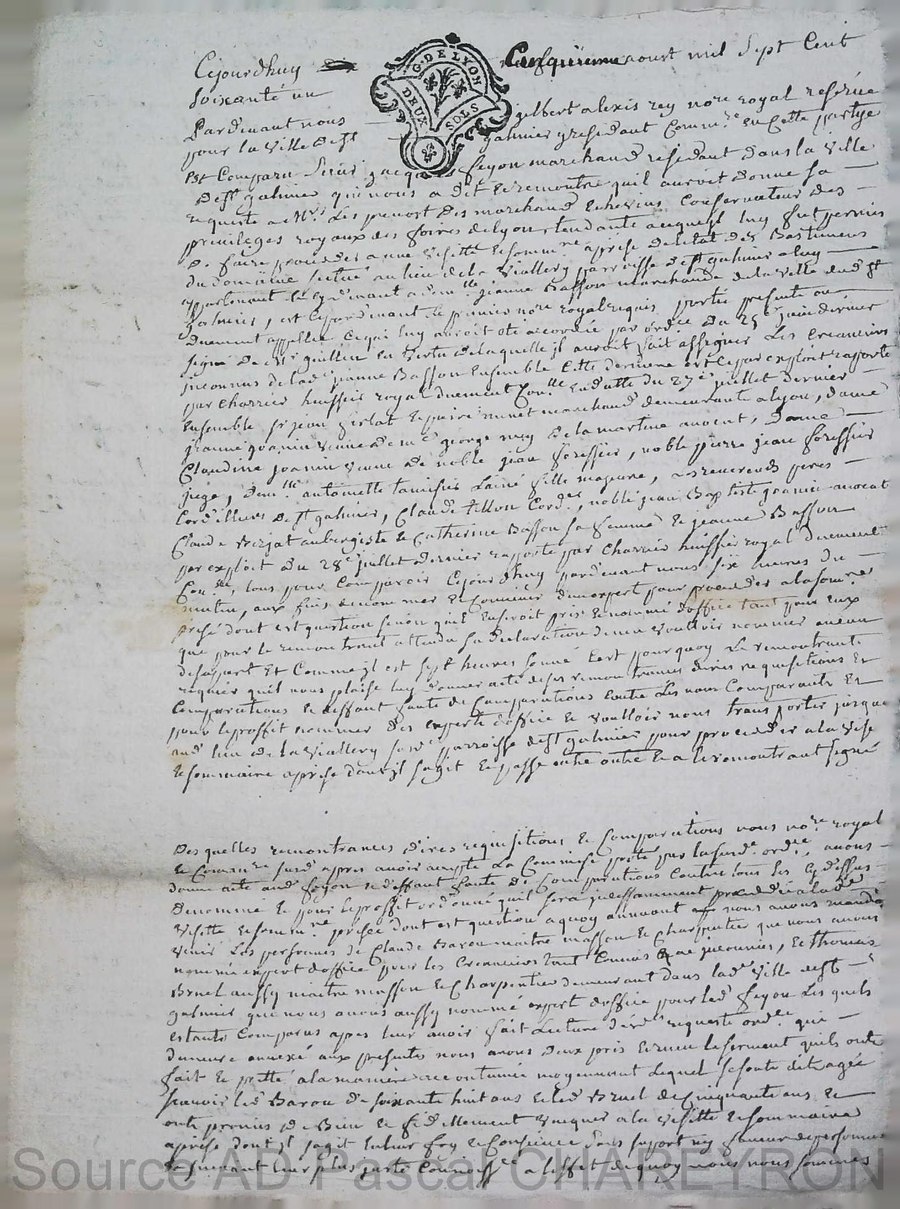 Cejourdhuy cinquieme aoust mil Sept Cent
G. DE LYON
DEUX SOLS
soixante un
Pardevant nous gilbert alexis rey no.re royal reservé
pour la ville de st galmier residant Comm.re en cette partye
Est Comparu Sieur jacques feyon marchand residant dans la ville
de st galmier qui nous a dit et remontré quil auroit donné sa
requeste a les prevost des marchand Echevins Conservateur des
privileges royaux des foires de lyon tendante a ce quil luy fut permis
de faire proceder a une visitte et somm.re aprise de letat des Bastiments
du domaine scitué au lieu de la Viallery parroisse de st galmier
appartenant cy devant a dem.lle jeanne Basson marchande de la ville dud st
galmier, et ce pardevant le premier no.re royal requis
duement appellée ce qui luy auroit eté accordée par ord.ce du 25e juin dernier
signé en vertu de laquelle jl auroit fait assigner les creanciers
jnconnus de lad jeanne Basson Ensemble cette derniere par exploit rapporté
par charrier huissier royal duement Con.llé en datte du 27e juillet dernier
Ensemble sr jean marchand demeurants a lyon, dame
jeanne joannin veuve de m.e george rey de la martine avocat, dame
Claudine joannin veuve de noble jean forissier, noble pierre jean forissier
dem.lle antoinette fille majeure, Les reverends peres
Cordelliers de st galmier, Claude noble jean Baptiste joannin avocat
Claude aubergiste et Catherine Basson sa femme et jeanne Basson
par exploit du 28e juillet dernier rapporté par Charrier huissier royal duement
Con.llé, tous pour Comparoir Cejourdhuy pardevant nous six heures du
matin, aux fins de nommer et convenir dun expert pour proceder a la somm.re
aprise dont est question sinon quil en seroit pris et nommé doffice tant pour eux
que pour le remontrant attendu sa declaration de nen vouloir nommer aucun
de sa part Et Comme jl est sept heures sonné Cest pourquoy Le remontrant
requier quil nous plaise luy donner acte de ses remontrances dires requisitions Et
Comparutions Et deffaut faute de Comparutions Contre Les non Comparants Et
pour le proffit nommer des experts doffice Et vouloir nous transporter jusque
aud lieu de la Viallery parroisse de st galmier pour proceder a la vise
Et sommaire aprise dont jl sagit Et passé outre et a le remontrant signé
Des quelles remontrances dires requisitions Et Comparutions nous no.re royal
et Comm.re susd apres avoir accepté La Commission portée par lad ord.ce avons
donné acte aud feyon et deffaut faute de Comparutions Contre tous les cy dessus
denommé Et pour le proffit ordonné quil sera jncessamment procedé a lad
visitte Et somm.re aprise dont est question a quoy nous avons mandé
venir Les personnes de Claude Barou maitre masson et Charpentier que nous avons
nommé expert doffice pour les Creanciers tant Connus que jnconnus, et thomas
Bruel aussy maitre masson et Charpentier demeurant dans lad ville de st
galmier que nous avons aussy nommé expert doffice pour led feyon Les quels
estants Comparus apres leur avoir fait Lecture desd requeste ord.ce qui
demeure annexé aux presents nous avons deux pris et receu le serment quils ont
fait et presté a la maniere accoutumée moyennant lequel se sont dit agée
scavoir led Barou de soixante huit ans et led Bruel de cinquante ans et
ont promis de Bien et fidellement vaquer a la visitte et sommaire
aprise dont jl sagit en leur foy et Conscience sans suport ny faveur de personnes
et suivant leur plus juste Connoiss.ce a leffet de quoy nous nous sommes
Source AD Pascal CHAREYRON